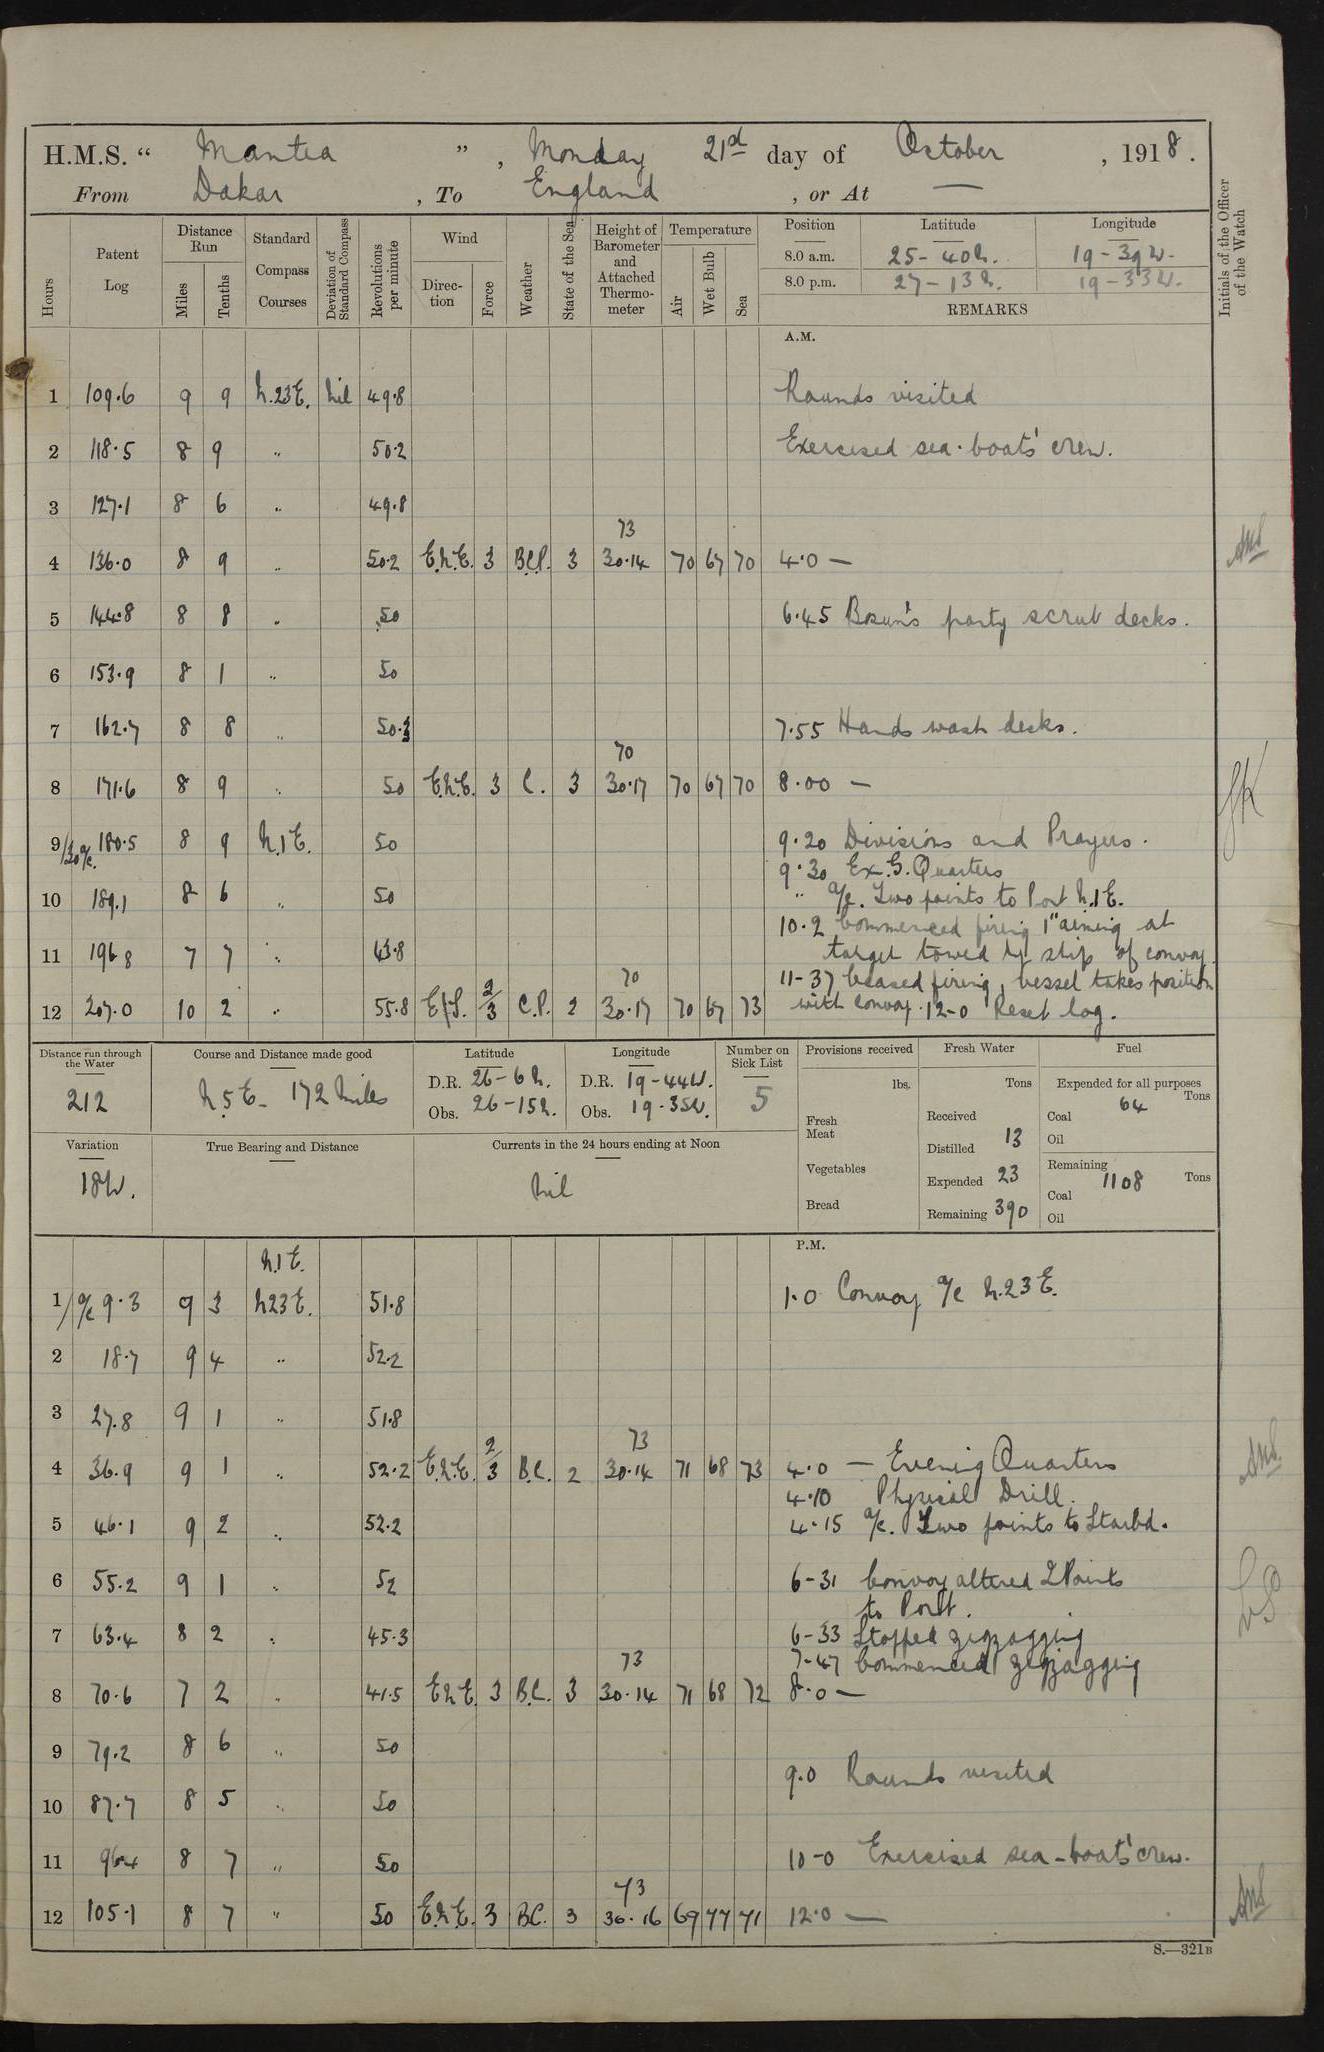 H.M.S. " Mantua " , Monday 21st day of October , 1918 .
From Dakar , To England , or At —
Hours Patent Log Distance Run Miles Tenths Standard Compass Courses Deviation of Standard Compass Revolutions per minute Wind Direction Force Weather State of the Sea Height of Barometer and Attached Thermometer Temperature Air Wet Bulb Sea Position Latitude Longitude Initials of the Officer of the Watch
8.0 a.m. 25 - 40 N. 19 - 39 W.
8.0 p.m. 27 - 13 N. 19 - 33 W.
REMARKS
A.M.
1 109.6 9 9 N.23E. Nil 49.8 Rounds visited
2 118.5 8 9 " 50.2 Exercised sea-boats' crew.
3 127.1 8 6 " 49.8
73
4 136.0 8 9 " 50.2 E.N.E. 3 B.C.P. 3 30.14 70 67 70 4.0 —
5 144.8 8 8 " 50 6.45 Bosun's party scrub decks.
6 153.9 8 1 " 50
7 162.7 8 8 " 50.3 7.55 Hands wash decks.
70
8 171.6 8 9 " 50 E.N.E. 3 C. 3 30.17 70 67 70 8.00 —
9/30 a/c. 180.5 8 9 N.1E. 50 9.20 Divisions and Prayers.
9.30 Ex. G. Quarters
10 189.1 8 6 " 50 " a/c. Two points to Port N.1E.
10.2 Commenced firing 1" aiming at
11 196.8 7 7 " 43.8 target towed by ship of convoy.
70 11-37 Ceased firing, vessel takes position
12 207.0 10 2 " 55.8 E/S. 2/3 C.P. 2 30.17 70 67 73 with convoy. 12-0 Reset log.
Distance run through the Water 212
Course and Distance made good N.5E - 172 Miles
Latitude D.R. 26-6 N. Obs. 26-15 N.
Longitude D.R. 19-44 W. Obs. 19-35 W.
Number on Sick List 5
Provisions received lbs. Fresh Meat Vegetables Bread
Fresh Water Tons Received Distilled 13 Expended 23 Remaining 390
Fuel Expended for all purposes Tons Coal 64 Oil Remaining Tons Coal 1108 Oil
Variation 18W.
True Bearing and Distance
Currents in the 24 hours ending at Noon Nil
P.M.
N.1E.
1/ a/c 9.3 9 3 N23E. 51.8 1.0 Convoy a/c N.23E.
2 18.7 9 4 " 52.2
3 27.8 9 1 " 51.8
73
4 36.9 9 1 " 52.2 E.N.E. 2/3 B.C. 2 30.14 71 68 73 4.0 — Evening Quarters
4.10 Physical Drill.
5 46.1 9 2 " 52.2 4.15 a/c. Two points to Starbd.
6 55.2 9 1 " 52 6-31 Convoy altered 2 Points
to Port.
7 63.4 8 2 " 45.3 6-33 Stopped zigzagging
73 7-47 Commenced zigzagging
8 70.6 7 2 " 41.5 E.N.E. 3 B.C. 3 30.14 71 68 72 8.0 —
9 79.2 8 6 " 50
9.0 Rounds visited
10 87.7 8 5 " 50
11 96.4 8 7 " 50 10-0 Exercised sea-boats' crew.
73
12 105.1 8 7 " 50 E.N.E. 3 B.C. 3 30.16 69 77 71 12.0 —
S.—321B